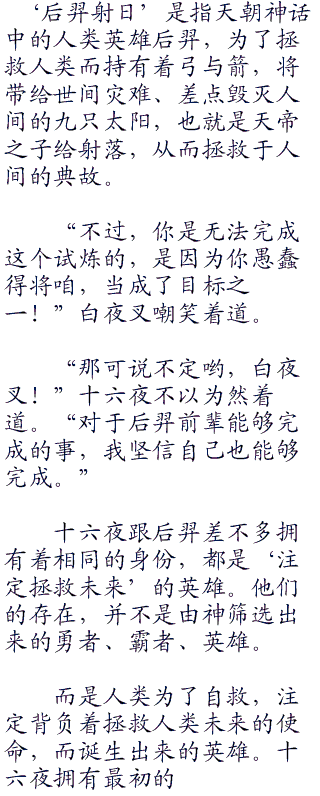 ‘后羿射日’是指天朝神话
中的人类英雄后羿，为了拯
救人类而持有着弓与箭，将
带给世间灾难、差点毁灭人
间的九只太阳，也就是天帝
之子给射落，从而拯救于人
间的典故。
“不过，你是无法完成
这个试炼的，是因为你愚蠢
得将咱，当成了目标之
一！”白夜叉嘲笑着道。
“那可说不定哟，白夜
叉！”十六夜不以为然着
道。“对于后羿前辈能够完
成的事，我坚信自己也能够
完成。”
十六夜跟后羿差不多拥
有着相同的身份，都是‘注
定拯救未来’的英雄。他们
的存在，并不是由神筛选出
来的勇者、霸者、英雄。
而是人类为了自救，注
定背负着拯救人类未来的使
命，而诞生出来的英雄。十
六夜拥有最初的